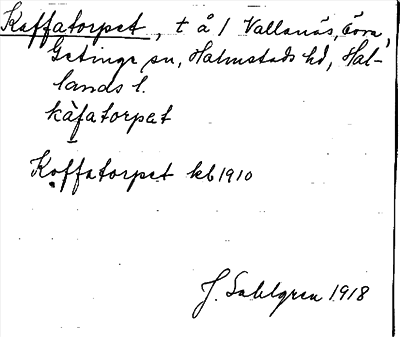 Kaffatorpet, t å 1 Vallanäs, Övra,
Getinge sn, Halmstads hd, Hal-
lands l.
kàfatorpat
Koffatorpet kb 1910
J. Sahlgren 1918